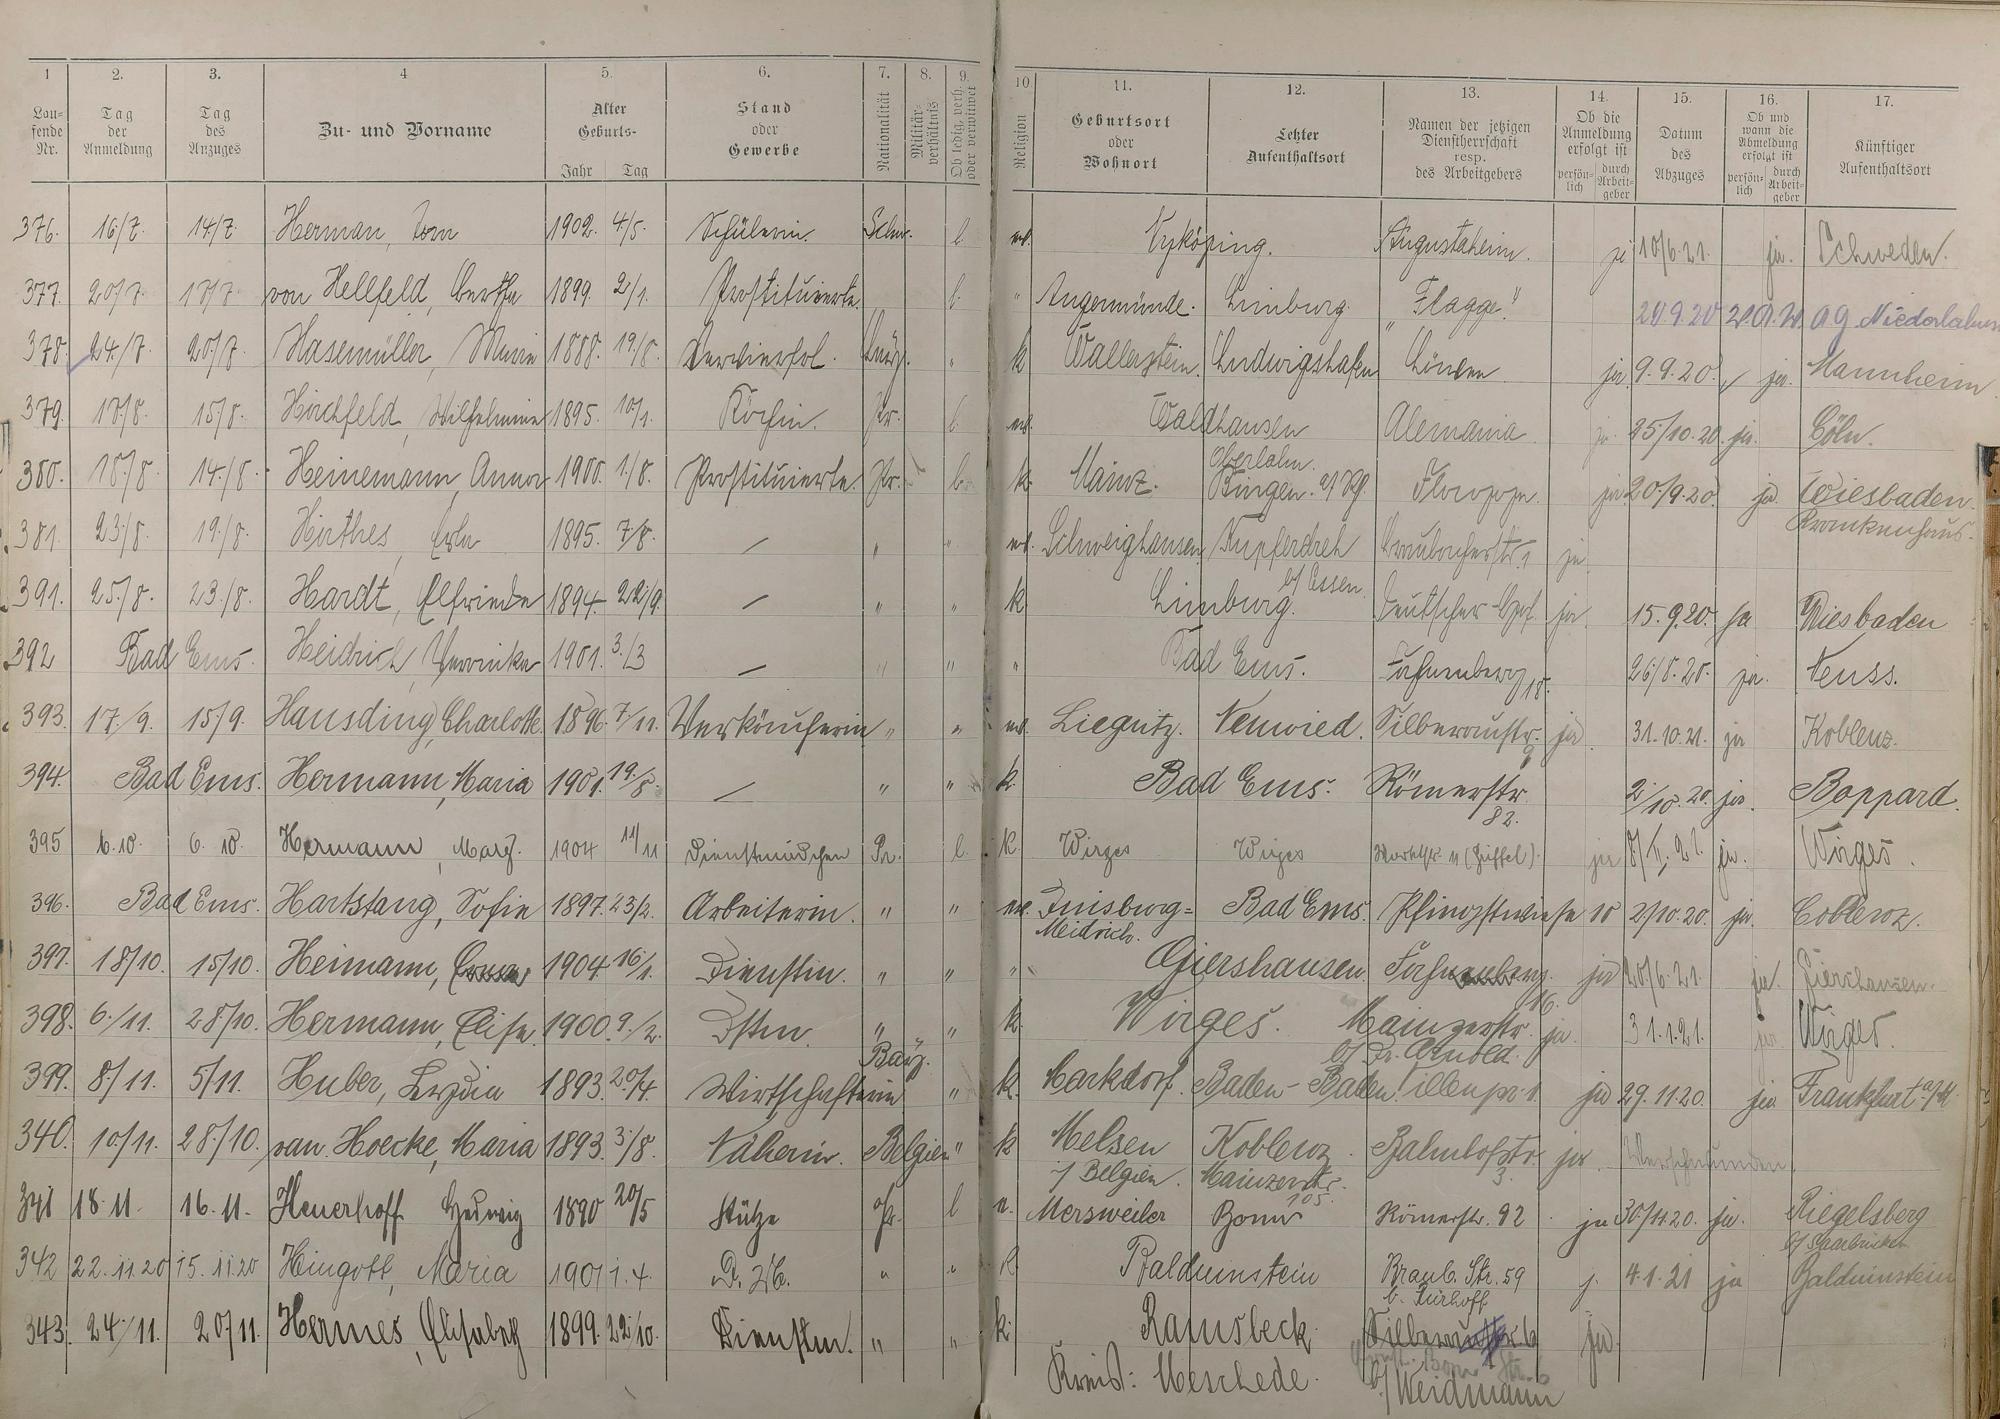 1 2. 3. 4 5. 6. 7. 8. 9. 10 11. 12. 13. 14. 15. 16. 17.
Lau-fende Nr. Tag der Anmeldung Tag des Anzuges Zu- und Vorname Alter Geburts- Jahr Tag Stand oder Gewerbe Nationalität Militär-verhältnis Ob ledig, verh. oder verwitwet Religion Geburtsort oder Wohnort Letzter Aufenthaltsort Namen der jetzigen Dienstherrschaft resp. des Arbeitgebers Ob die Anmeldung erfolgt ist persön-lich durch Arbeit-geber Datum des Abzuges Ob und wann die Abmeldung erfolgt ist persön-lich durch Arbeit-geber Künftiger Aufenthaltsort
376. 16/7. 14/7. Herman, 1902. 4/5. Schülerin. Schw. l. ev. Nyköping. Augustaheim. ja 10/6.21. ja. Schweden.
377. 20/7. 17/7. von Hellfeld, Bertha 1899. 2/1. Prostituierte l. " Angermünde. Limburg. "Flagge" 20.9.20 A.G. Niederlahnstein
378. 24./7. 20/7. Hasemüller, Marie 1888. 19/8. k Wallerstein. Ludwigshafen Löwen ja. 9.9.20. ja. Mannheim
379. 17/8. 15/8. Hirchfeld, Wilhelmine 1895. 10/1. Köchin. Pr. l. ev. Waldhausen Alemania ja. 25/10.20. ja. Cöln.
Oberlahn.
380. 18./8. 14./8. Heinemann, Anna 1900. 1./8. Prostituierte. Pr. l. k. Mainz. Bingen a/Rh. ja 20./9.20. ja Wiesbaden
Krankenhaus.
381. 23./8. 19./8. Hirthes, Erla 1895. 7/8. — " " ev. Schweighausen Kupferdreh ja.
b/ Essen.
391. 25./8. 23./8. Hardt, Elfriede 1894. 22/9. — " " k Limburg. Deutscher Hof ja. 15.9.20. ja Wiesbaden
392 Bad Ems. Heidrich, Veronika 1901. 3./3 — " " " Bad Ems. 18. 26/8.20. ja. Neuss.
393. 17./9. 15/9. Hausding, Charlotte. 1896. 7/11. Verkäuferin " " ev. Liegnitz. Neuwied. Silberaustr. 9 ja. 31.10.21. ja Koblenz.
394. Bad Ems. Hermann, Maria 1901. 19./8. — " " k. Bad Ems. Römerstr. 82. 2/10.20. ja. Boppard.
395 6.10. 6.10. Hermann, Marg. 1904 11/11 Dienstmädchen Pr. l. k. Wirges Wirges ja ja. Wirges.
396. Bad Ems. Hartstang, Sofie 1897. 23/2. Arbeiterin. " " ev. Duisburg= Bad Ems. Pfingstwiese 10 2/10.20. ja. Coblenz.
Meidrich.
397. 18/10. 15/10. Heimann, 1904 16/1. Dienstm. " " " Giershausen. ja 20/6.21. ja. Giershausen.
16.
398. 6./11. 28/10. Hermann, Elise. 1900. 9./2. Dstm. " " k. Wirges. Mainzerstr. ja. 31.1.21. ja Wirges.
Bay. b/ Dr. Arnold.
399. 8./11. 5/11. Huber, 1893. 20/4. Wirtschafterin " k. Markdorf. Baden-Baden. Villenpr. 1. ja 29.11.20. ja Frankfurt a/M.
340. 10/11. 28/10. van Hoecke, Maria 1893. 3./8. Näherin. Belgien " k Melsen Koblenz. Bahnhofstr. 3. ja.
i/ Belgien. Mainzerstr. 105.
341 18.11. 16.11. Heuerhoff Hedwig 1890 20/5 Stütze Pr. l Mersweiler Bonn Römerstr. 92 ja 30/11.20. ja. Riegelsberg
b/ Saarbrücken
342 22.11.20 15.11.20 Hingott, Maria 1901 1.4. " " k Balduinstein Braub. Str. 59 j. 4.1.21 ja Balduinstein
343. 24./11. 20/11. Hermes, Elisabeth 1899. 22/10. Dienstm. " " k. Ramsbeck ja.
Kreis: Meschede. b/ Weidmann